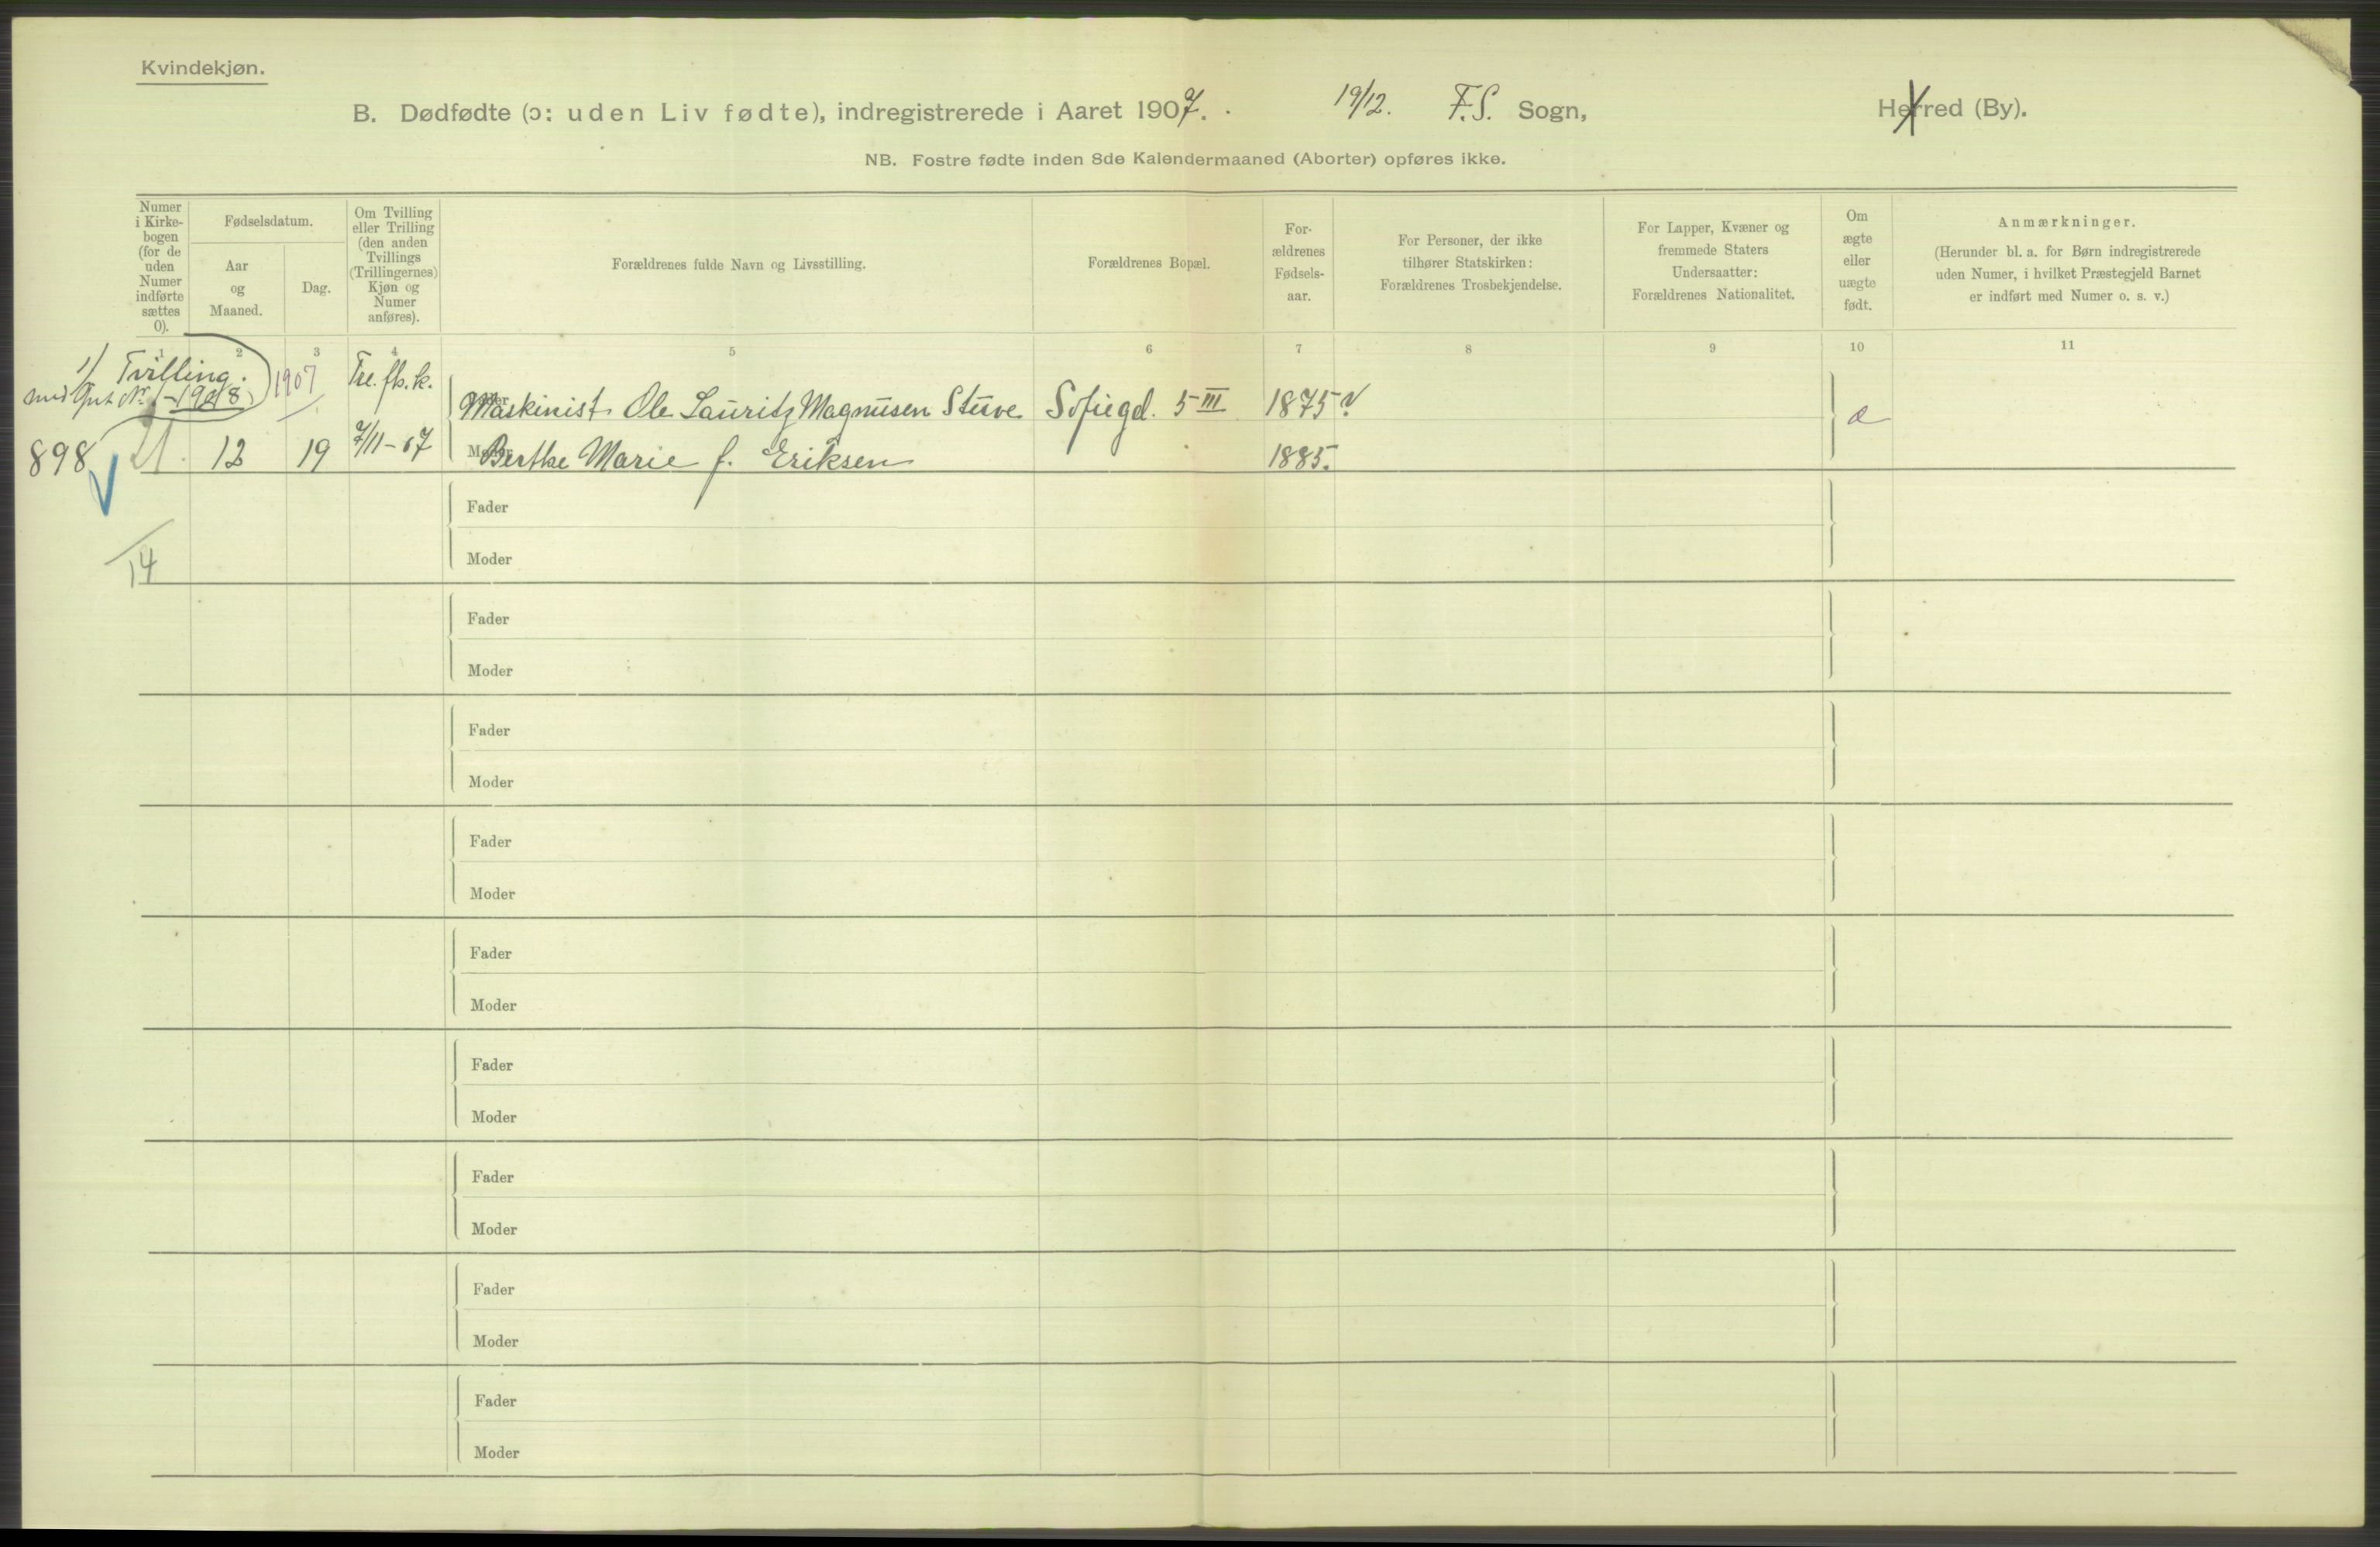 Kvindekjøn.
B. Dødfødte (ɔ: uden Liv fødte), indregistrerede i Aaret 1907. 19/12. F.S. Sogn, Herred (By).
NB. Fostre fødte inden 8de Kalendermaaned (Aborter) opføres ikke.
Numer i Kirke-bogen (for de uden Numer indførte sættes 0).
Fødselsdatum.
Aar og Maaned.
Dag.
Om Tvilling eller Trilling (den anden Tvillings (Trillingernes) Kjøn og Numer anføres).
Forældrenes fulde Navn og Livsstilling.
Forældrenes Bopæl.
For-ældrenes Fødsels-aar.
For Personer, der ikke tilhører Statskirken: Forældrenes Trosbekjendelse.
For Lapper, Kvæner og fremmede Staters Undersaatter: Forældrenes Nationalitet.
Om ægte eller uægte født.
Anmærkninger.
(Herunder bl. a. for Børn indregistrerede uden Numer, i hvilket Præstegjeld Barnet er indført med Numer o. s. v.)
1 2 3 4 5 6 7 8 9 10 11
1/ Tvilling. 1907
Maskinist Ole Lauritz Magnusen Stuve Sofiegd. 5 III 1875
898 21. 12 19 7/11-07 Moder Berthe Marie f. Eriksen 1885.
Fader
14
Moder
Fader
Moder
Fader
Moder
Fader
Moder
Fader
Moder
Fader
Moder
Fader
Moder
Fader
Moder
Fader
Moder